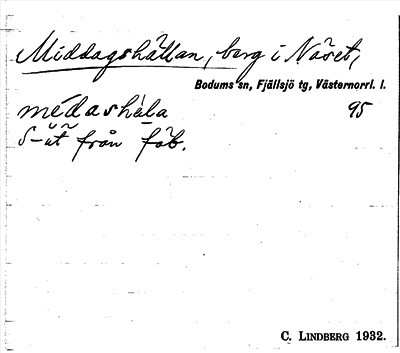 Middagshällan, berg i Näset,
Bodums sn, Fjällsjö tg, Västernorrl. l.
médashäla 95
S-ut från fäb.
C. LINDBERG 1932.